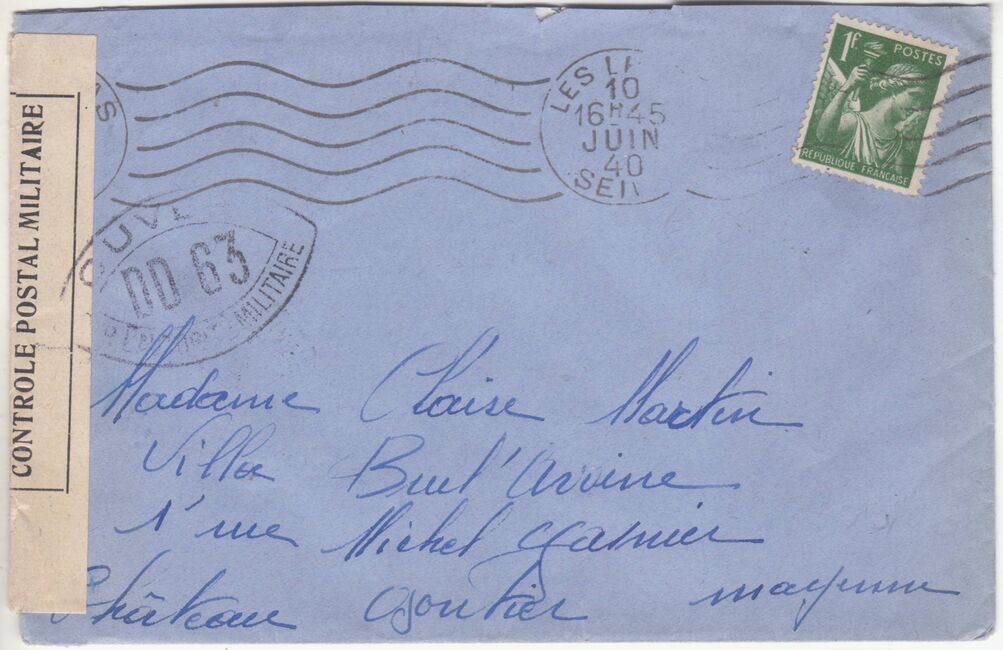 CONTROLE POSTAL MILITAIRE
LES
10
16H45
JUIN
40
SEIN
1f.
POSTES
REPUBLIQUE FRANÇAISE
OUVE
DD 63
MILITAIRE
Madame Claise Martin
Villa
1' rue Michel Gasnier
Château Gontier mayenne